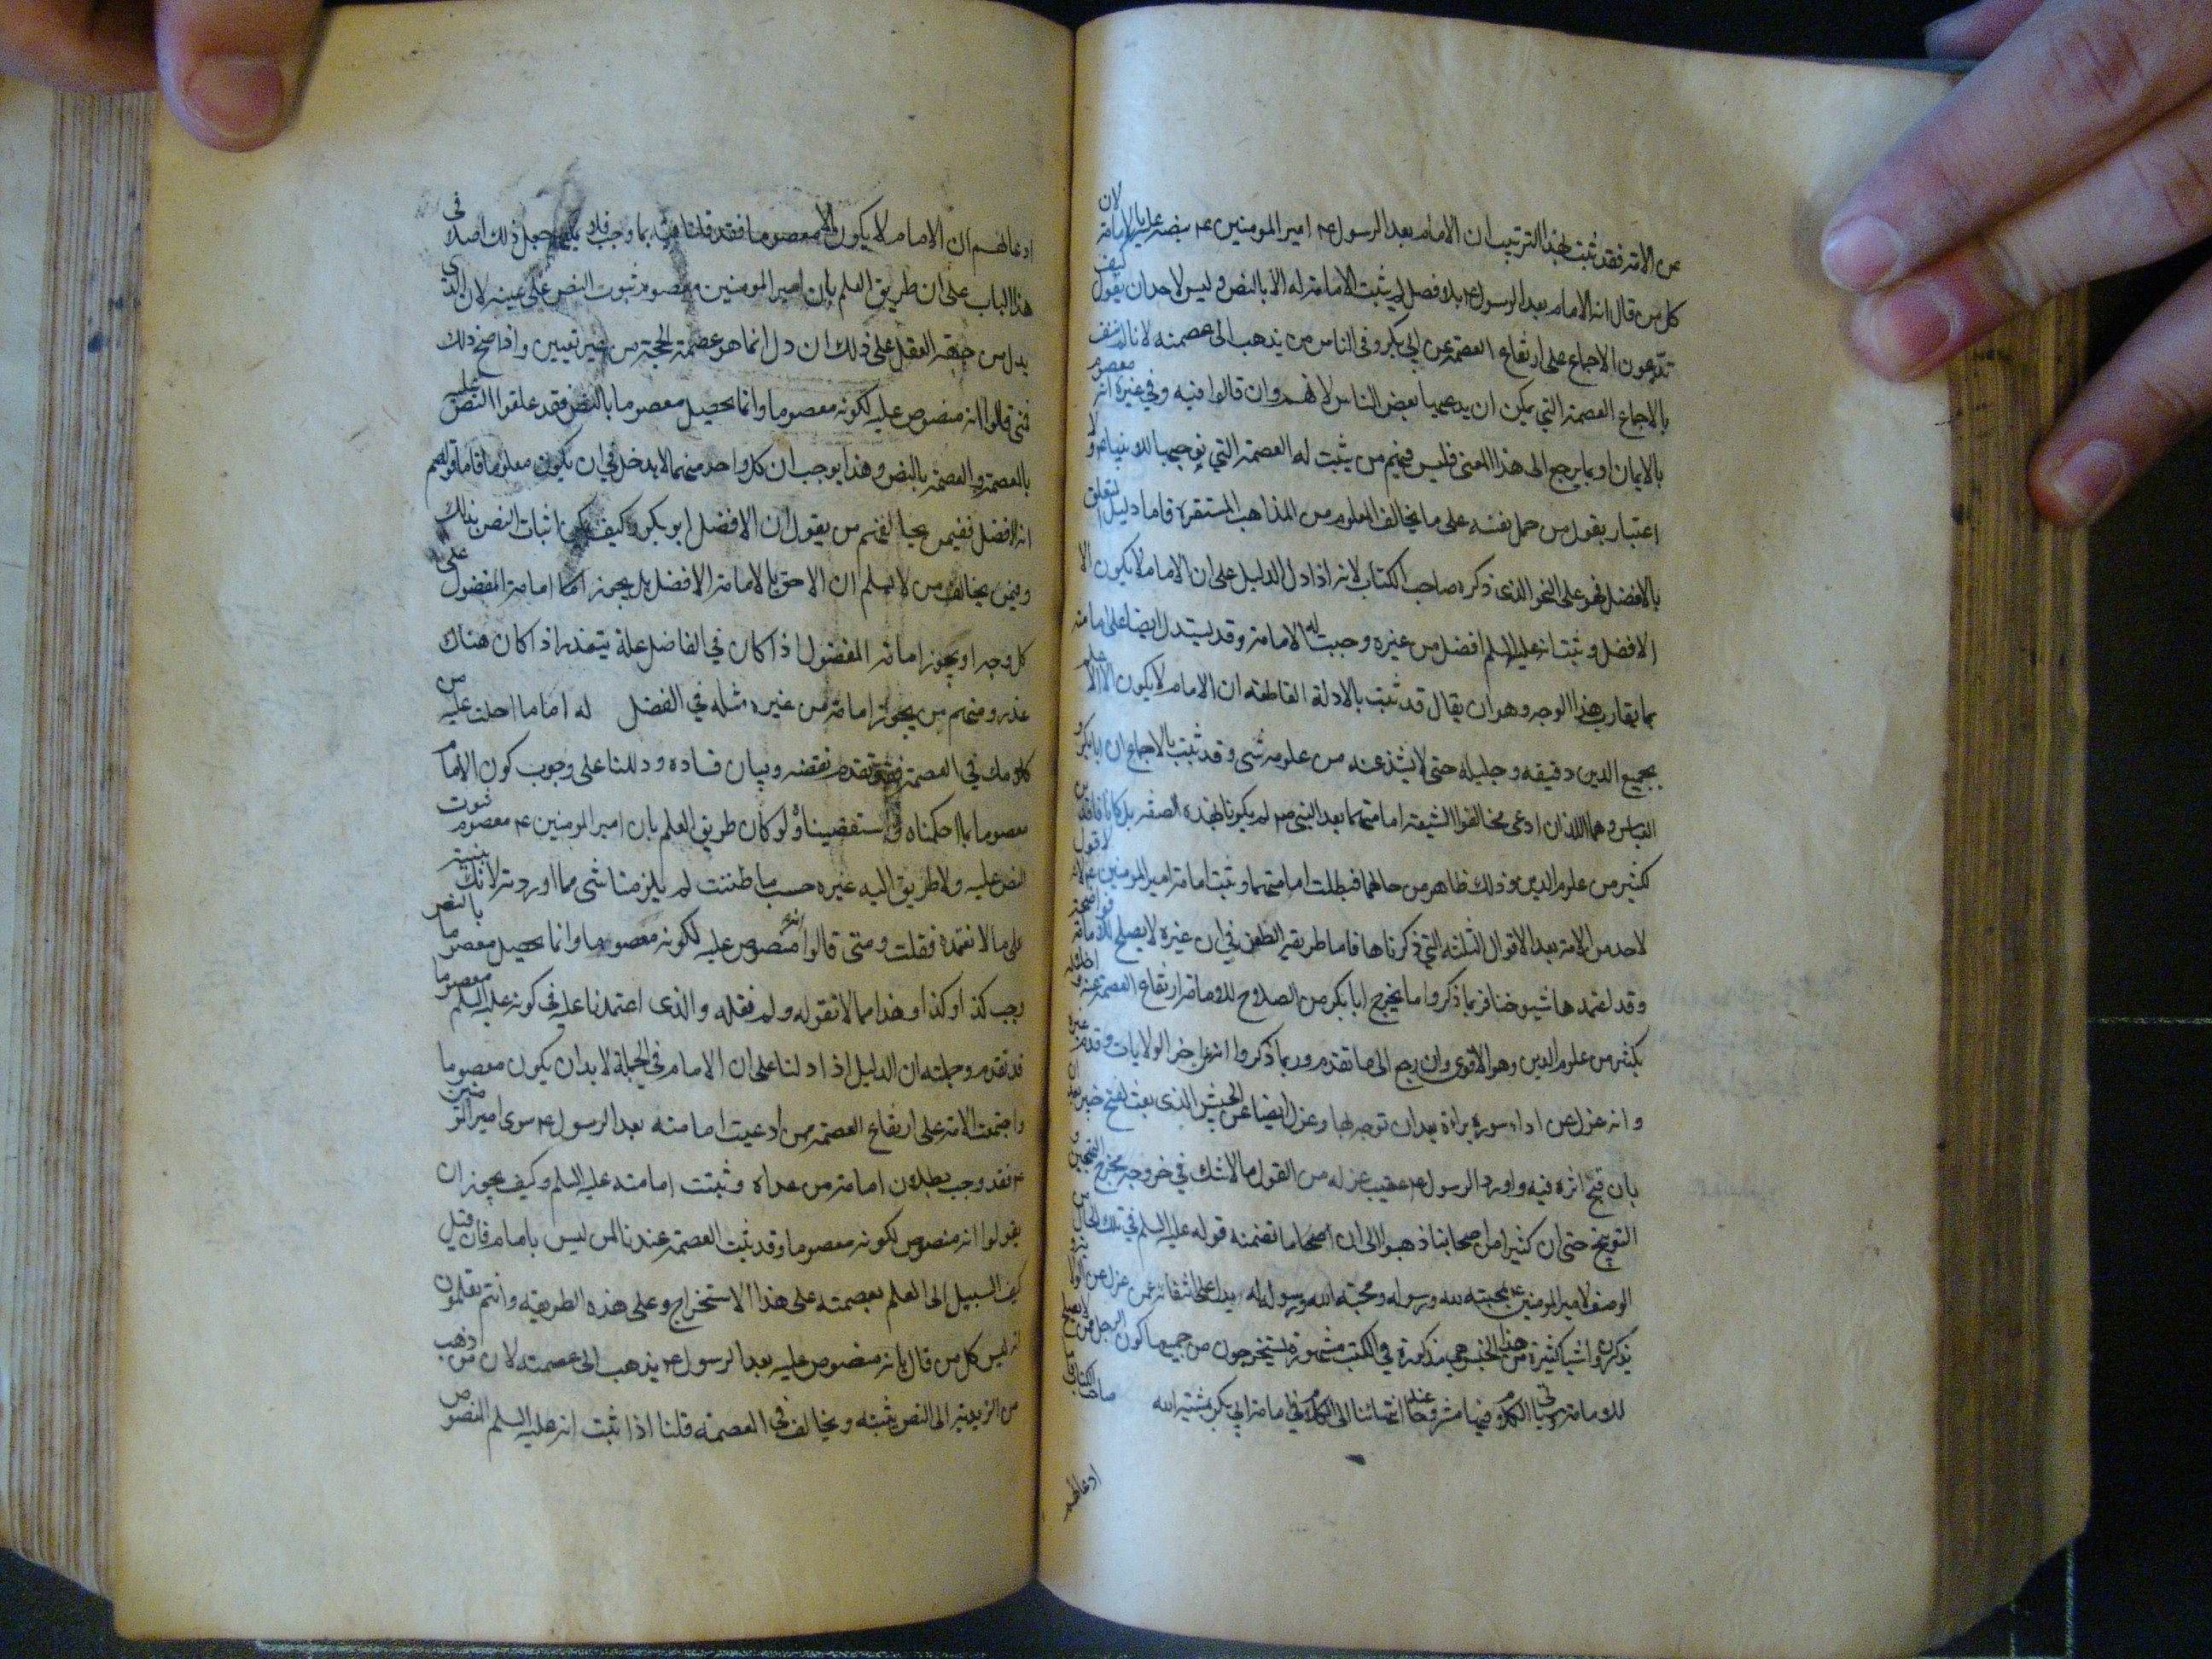 عن الامة فقد ثبت بهذا الترتيب ان الامام بعد الرسول ۴ امير المومنين ۴ بنصه عليه بالامامة لان
كل من قال انه الامام بعد الرسول ۴ بلا فصل لم يثبت الامامة له الا بالنص وليس لاحد ان يقول كيف
تدعون الاجماع على ارتفاع العصمة عن ابي بكر وفي الناس من يذهب الى عصمته لانا لم ننف
بالاجماع العصمة التي يمكن ان يدعيها بعض الناس لانهم وان قالوا فيه وفي غيره انه معصوم
بالايمان او بما يرجع الى هذا المعنى فليس فيهم من يثبت له العصمة التي نوجبها للانبياء ۴ و لا
اعتبار بقول من حمل نفسه على ما يخالف المعلوم من المذاهب المستقرة فاما دليل التعلق
بالافضل فهو على النحو الذى ذكره صاحب الكتاب لانه اذا دل الدليل على ان الامام لا يكون الا
الافضل وثبت انه عليه السلم افضل من غيره وجبت له الامامة وقد يستدل ايضا على امامته
بما يقارب هذا الوجه وهو ان يقال قد ثبت بالادلة القاطعة ان الامام لا يكون الا
بجميع الدين دقيقه وجليله حتى لا يشذ عنه من علومه شى وقد ثبت بالاجماع ان ابا بكر و
العباس وهما اللذان ادعى مخالفوا الشيعة امامتهما بعد النبي صم لم يكونا بهذه الصفة بل كانا فاقدين
لكثير من علوم الدين وذلك ظاهر من حالهما فبطلت امامتهما وثبت امامة امير المومنين ۴ لانه لا قول
لاحد من الامة بعد الاقوال الثلثة التي ذكرناها فاما طريقة الطعن في ان غيره لا يصلح للامامة فواضحة
وقد اعتمدها شيوخنا فربما ذكروا ما يخرج ابا بكر من الصلاح للامامة ارتفاع العصمة عنه و اخلاله
بكثير من علوم الدين وهو الاقوى وان رجع الى ما تقدم وربما ذكروا انه اخر الولايات وقدم غيره
وانه عزل عن اداء سورة براءة بعد ان توجه بها وعزل ايضا عن الجيش الذى بعث لفتح خيبر بعد ان
بان قبح اثره فيه واورد الرسول ۴ عقيب عزله من القول ما لا شك في خروجه مخرج التهجين و
التوبيخ حتى ان كثيرا من اصحابنا ذهبوا الى ان ما تضمنه قوله عليه السلم في تلك الحال من
الوصف لامير المومنين ۴ بمحبته لله ورسوله ومحبة الله ورسوله له يدل على انتفائه عمن عزل عن الولاية و
يذكرون اشيا كثيرة من هذا الجنس هي مذكورة في الكتب مشهورة يستخرجون من جميعها كون الرجل ممن لا يصلح
للامامة وياتى الكلام فيها مشروحا عند انتهائنا الى الكلام في امامة ابي بكر بمشية الله صاحب الكتاب
ادعائهم
ادعائهم ان الامام لا يكون الا معصوما فقد قلنا فيه بما وجب فلا يمكنهم جعل ذلك اصلا فى
هذا الباب على ان طريق العلم بان امير المومنين معصوم ثبوت النص على عينه لان الذى
يدل من جهة العقل على ذلك ان دل انما هو عصمة الحجة من غير تعيين واذا صح ذلك
فمتى قالوا انه منصوص عليه لكونه معصوما وانما يحصل معصوما بالنص فقد علقوا النص عليه
بالعصمة والعصمة بالنص وهذا يوجب ان كل واحد منهما لا يدخل في ان يكون معلوما فاما قولهم
انه الافضل ففيمن يخالفهم من يقول ان الافضل ابو بكر وكيف يمكن اثبات النص بذلك
وفيمن يخالف من لا يسلم ان الاحق بالامامة الافضل بل يجوز امامة المفضول على
كل وجه او يجوز امامة المفضول اذا كان في الفاضل علة يتعذر اذا كان هناك
عذر ومنهم من يجوز امامة من غيره مثله في الفضل له اما ما احلت عليه من
كلامك في العصمة فقد تقدم نقضه وبيان فساده ودللنا على وجوب كون الامام
معصوما بما احكمناه واستقصيناه ولو كان طريق العلم بان امير المومنين ۴ معصوم ثبوت
النص عليه ولا طريق اليه غيره حسب ما ظننت لم يلزمنا شى مما اوردته لانك بنيته
على ما لا نعتمده فقلت ومتى قالوا انه منصوص عليه لكونه معصوما وانما يحصل معصوما بالنص
وجب كذا وكذا وهذا مما لا نقوله ولم نقله والذى اعتمدنا عليه في كونه عليه السلم معصوما
قد تقدم وجملته ان الدليل اذا دلنا على ان الامام في الجملة لا بد ان يكون معصوما
واجتمعت الامة على ارتفاع العصمة عمن ادعيت امامته بعد الرسول ۴ سوى امير المومنين
۴ فقد وجب بطلان امامة من عداه وثبتت امامته عليه السلم وكيف يجوز ان
يقولوا انه منصوص لكونه معصوما وقد ثبت العصمة عندنا لمن ليس بامام فان قيل
كيف السبيل الى العلم بعصمته على هذا الاستخراج وعلى هذه الطريقة وانتم تعلمون
انه ليس كل من قال بانه منصوص عليه بعد الرسول ۴ يذهب الى عصمته لان من ذهب
من الزيدية الى النص يثبته ويخالف فى العصمة قلنا اذا ثبت انه عليه السلم المنصوص